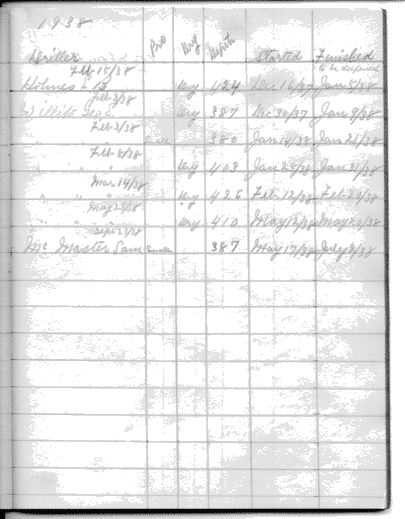 1938
Driller Pro Dry Depth Started Finished
Feb 15/38 to be deepened
Holmes Dry 424 Dec 16/37 Jan 5/38
Feb 3/38
Willits Geo. Dry 387 Dec 30/37 Jan 9/38
Feb 3/38
" " 380 Jan 14/38 Jan 22/38
Feb 8/38
" " Dry 403 Jan 25/38 Jan 31/38
Mar 14/38
" " " Dry 426 Feb 12/38 Feb 20/38
May 28/38
" " " Dry 410 May 12/38 May 20/38
Sept 23/38
Mc Master Sam 387 May 19/38 July 9/38